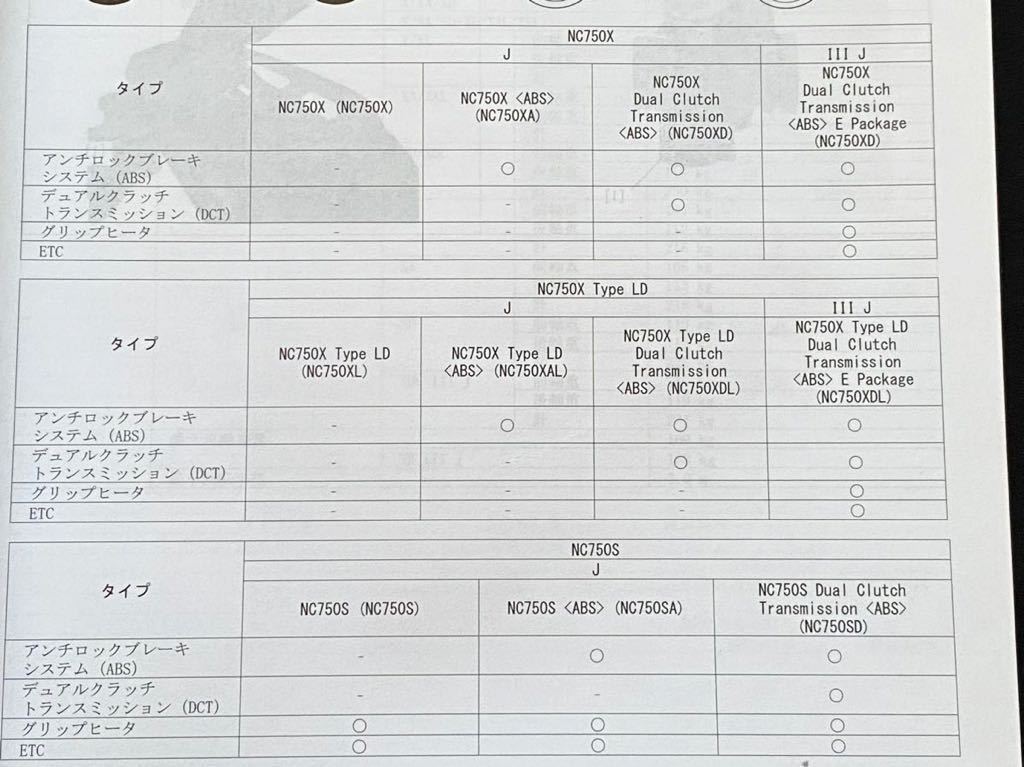 NC750X
タイプ
J
III J
NC750X (NC750X)
NC750X <ABS>
(NC750XA)
NC750X
Dual Clutch
Transmission
<ABS> (NC750XD)
NC750X
Dual Clutch
Transmission
<ABS> E Package
(NC750XD)
アンチロックブレーキ
システム (ABS)
- ○ ○ ○
デュアルクラッチ
トランスミッション (DCT)
- - ○ ○
グリップヒータ - - - ○
ETC - - - ○
[1]
NC750X Type LD
タイプ
J
III J
NC750X Type LD
(NC750XL)
NC750X Type LD
<ABS> (NC750XAL)
NC750X Type LD
Dual Clutch
Transmission
<ABS> (NC750XDL)
NC750X Type LD
Dual Clutch
Transmission
<ABS> E Package
(NC750XDL)
アンチロックブレーキ
システム (ABS)
- ○ ○ ○
デュアルクラッチ
トランスミッション (DCT)
- - ○ ○
グリップヒータ - - - ○
ETC - - - ○
NC750S
タイプ
J
NC750S (NC750S)
NC750S <ABS> (NC750SA)
NC750S Dual Clutch
Transmission <ABS>
(NC750SD)
アンチロックブレーキ
システム (ABS)
- ○ ○
デュアルクラッチ
トランスミッション (DCT)
- - ○
グリップヒータ ○ ○ ○
ETC ○ ○ ○